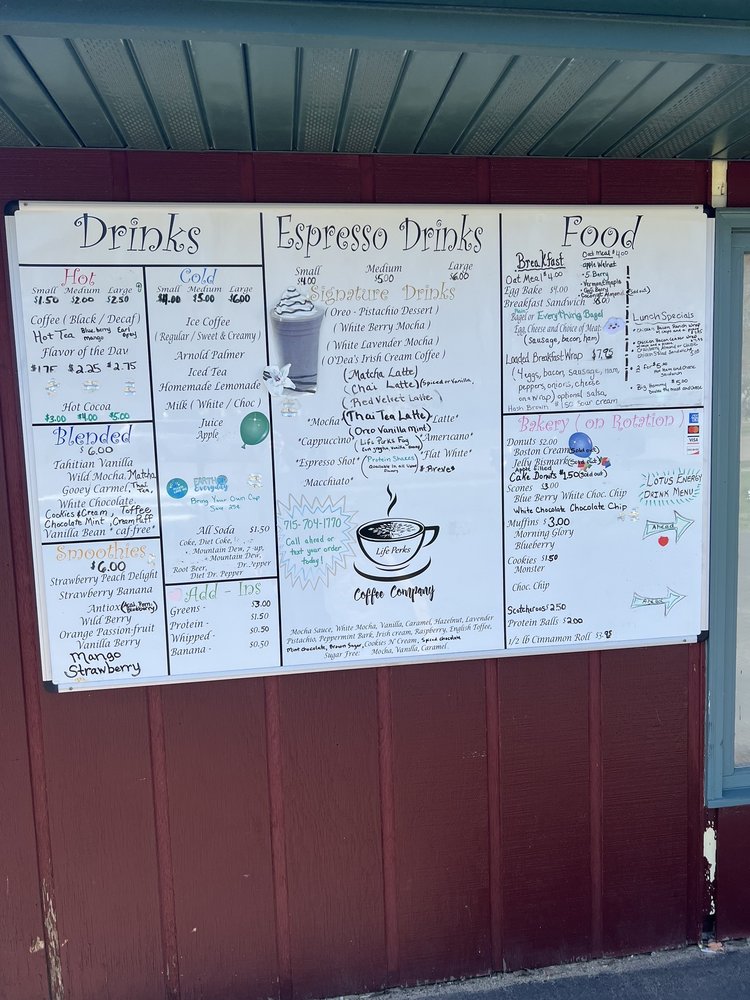 Drinks
Hot
Small Medium Large
$1.50 $2.00 $2.50
Coffee (Black / Decaf)
Hot Tea Blueberry Earl
mango Grey
Flavor of the Day
$1.75 $2.25 $2.75
Hot Cocoa
$3.00 $4.00 $5.00
Blended
$6.00
Tahitian Vanilla
Wild Mocha, Matcha
Gooey Carmel, Thai
Tea,
White Chocolate
Cookies & Cream, Toffee
Chocolate Mint, Cream Puff
Vanilla Bean *caf-free*
Smoothies
$6.00
Strawberry Peach Delight
Strawberry Banana
Antiox (Acai, Pom, Blueberry)
Wild Berry
Orange Passion-fruit
Vanilla Berry
Mango
Strawberry
Cold
Small Medium Large
$4.00 $5.00 $6.00
Ice Coffee
(Regular / Sweet & Creamy)
Arnold Palmer
Iced Tea
Homemade Lemonade
Milk (White / Choc)
Juice
Apple
EARTH
Everyday
Bring Your Own Cup
Save 25¢
All Soda $1.50
Coke, Diet Coke,
Mountain Dew, 7-up,
Mountain Dew,
Root Beer, Dr. Pepper
Diet Dr. Pepper
Add - Ins
Greens - $3.00
Protein - $1.50
Whipped - $0.50
Banana - $0.50
Espresso Drinks
Small Medium Large
$4.00 $5.00 $6.00
Signature Drinks
(Oreo - Pistachio Dessert)
(White Berry Mocha)
(White Lavender Mocha)
(O'Dea's Irish Cream Coffee)
(Matcha Latte)
(Chai Latte) (Spiced or Vanilla,)
(Red Velvet Latte)
(Thai Tea Latte)
(Oreo Vanilla Mint)
*Mocha* *Latte*
*Cappuccino* Life Perks Fog *Americano*
*Espresso Shot* (Protein Shakes) *Flat White*
*Macchiato* *Breve*
715-704-1770
Call ahead or
text your order
today!
Life Perks
Coffee Company
Mocha Sauce, White Mocha, Vanilla, Caramel, Hazelnut, Lavender
Pistachio, Peppermint Bark, Irish cream, Raspberry, English Toffee,
Mint chocolate, Brown Sugar, Cookies N' Cream, Spiced chocolate
Sugar Free: Mocha, Vanilla, Caramel
Food
Breakfast
Oat Meal $4.00
Egg Bake $4.00
Breakfast Sandwich 8.00
Plain Bagel or Everything Bagel
Egg, Cheese and Choice of Meat
(sausage, bacon, ham)
Loaded Breakfast Wrap $7.95
(4 eggs, bacon, sausage, ham,
peppers, onions, cheese
on a wrap) optional salsa,
Hash Brown $1.50 sour cream
Oat Meal $4.00
apple Walnut
5 Berry
Vermont Maple
Goji Berry
Coconut Almond (Sold out)
Lunch Specials
Bakery (on Rotation)
Donuts $2.00
Boston Cream (Sold out)
Jelly Bismark (Sold out)
Apple filled
Cake Donuts $1.50 (Sold out)
Scones $3.00
Blue Berry White Choc. Chip
White Chocolate Chocolate Chip
Muffins $3.00
Morning Glory
Blueberry
Cookies $1.50
Monster
Choc. Chip
Scotcharoos $2.50
Protein Balls $2.00
1/2 lb Cinnamon Roll $3.95
Lotus Energy
Drink Menu
Ahead